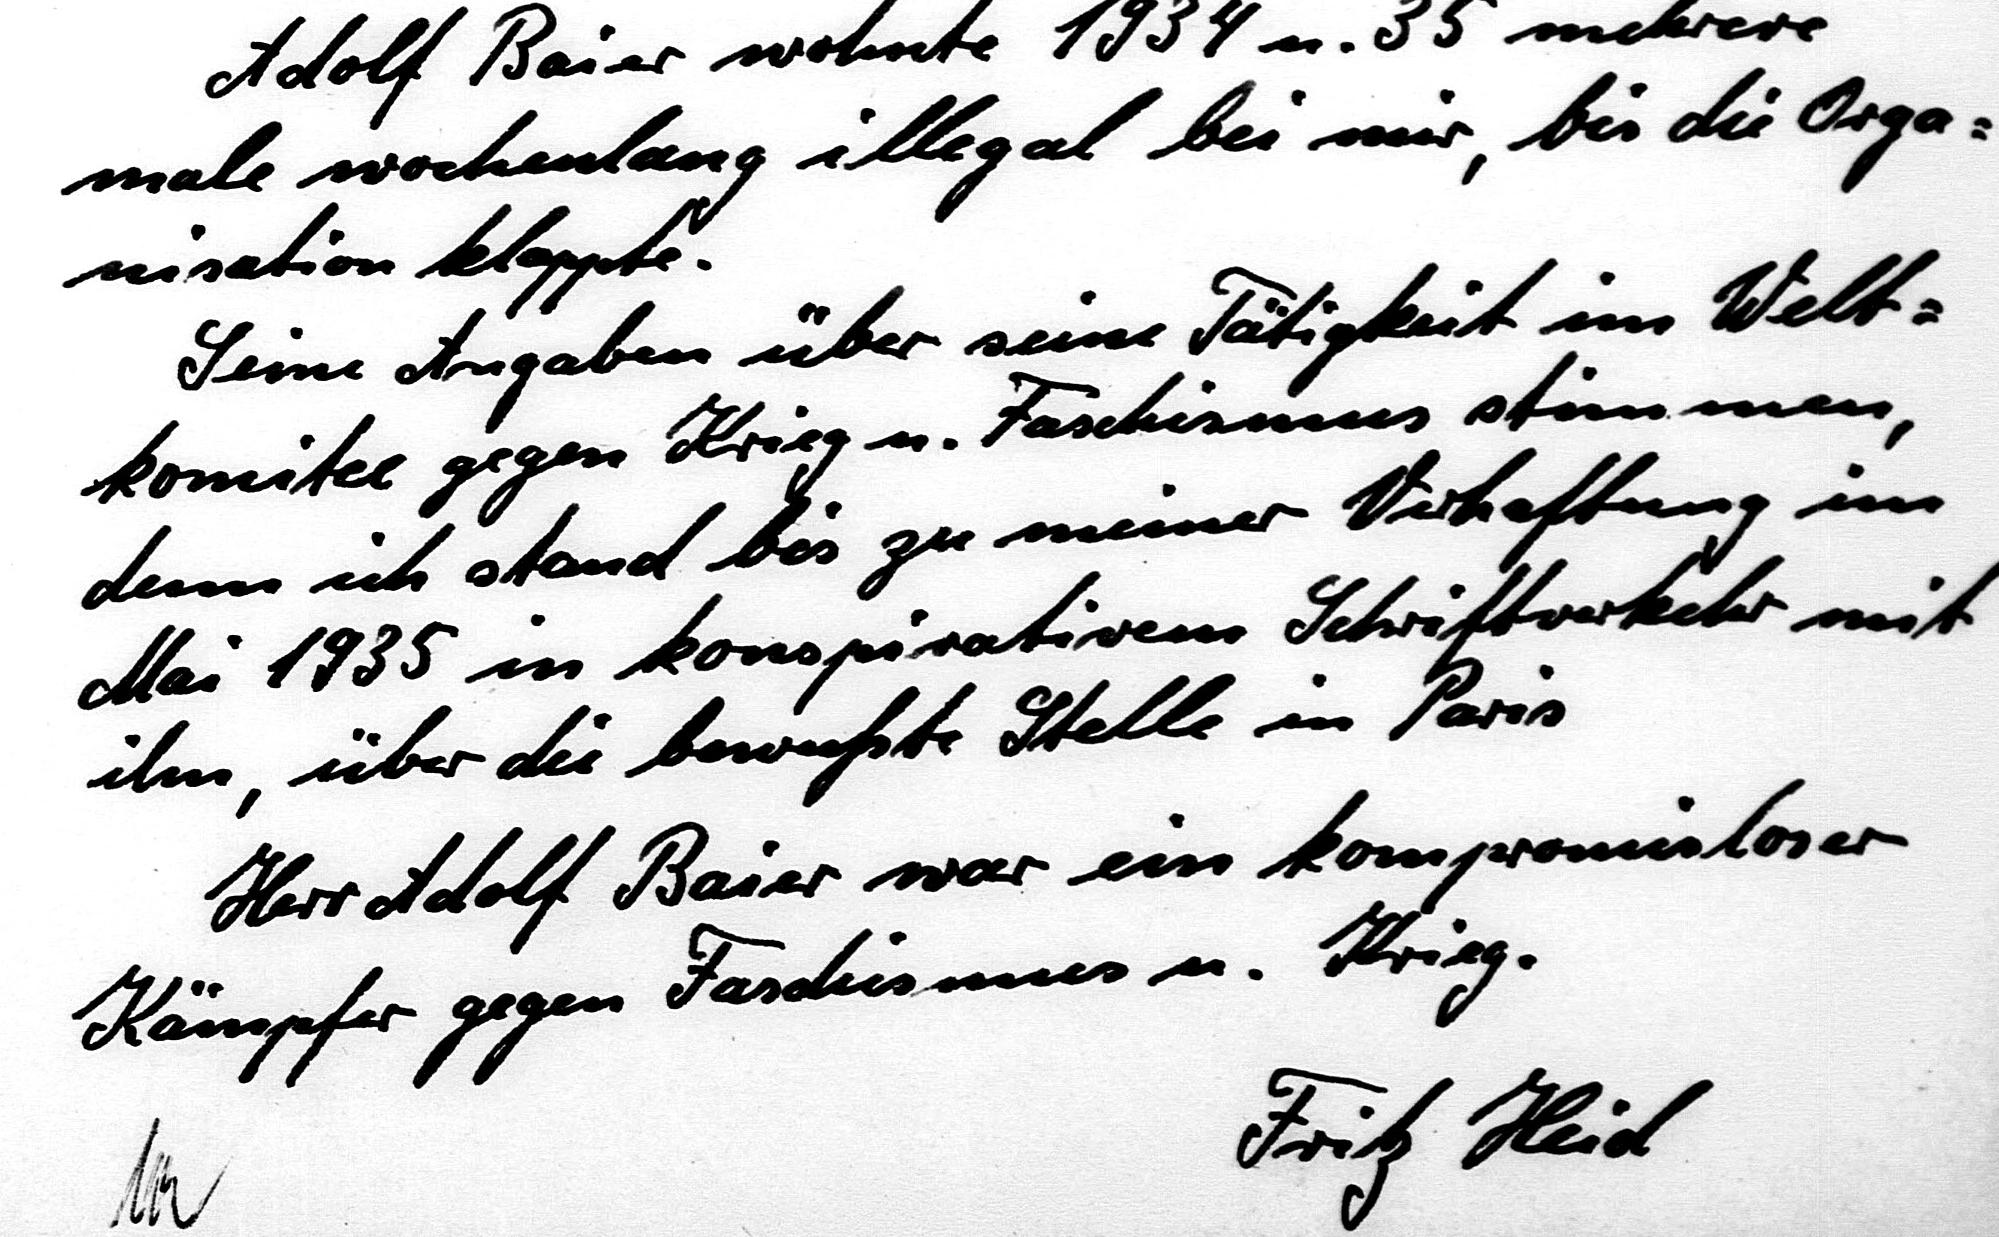 Adolf Baier wohnte 1934 u. 35 mehrere
male wochenlang illegal bei mir, bis die Orga=
nisation klappte.
Seine Angaben über seine Tätigkeit im Welt=
komitee gegen Krieg u. Faschismus stimmen,
denn ich stand bis zu meiner Verhaftung im
Mai 1935 in konspirativem Schriftverkehr mit
ihm, über die bewußte Stelle in Paris
Herr Adolf Baier war ein kompromisloser
Kämpfer gegen Faschismus u. Krieg.
Fritz Heid